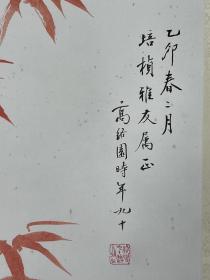 乙卯春二月
培楨雅友属正
高络園時年九十